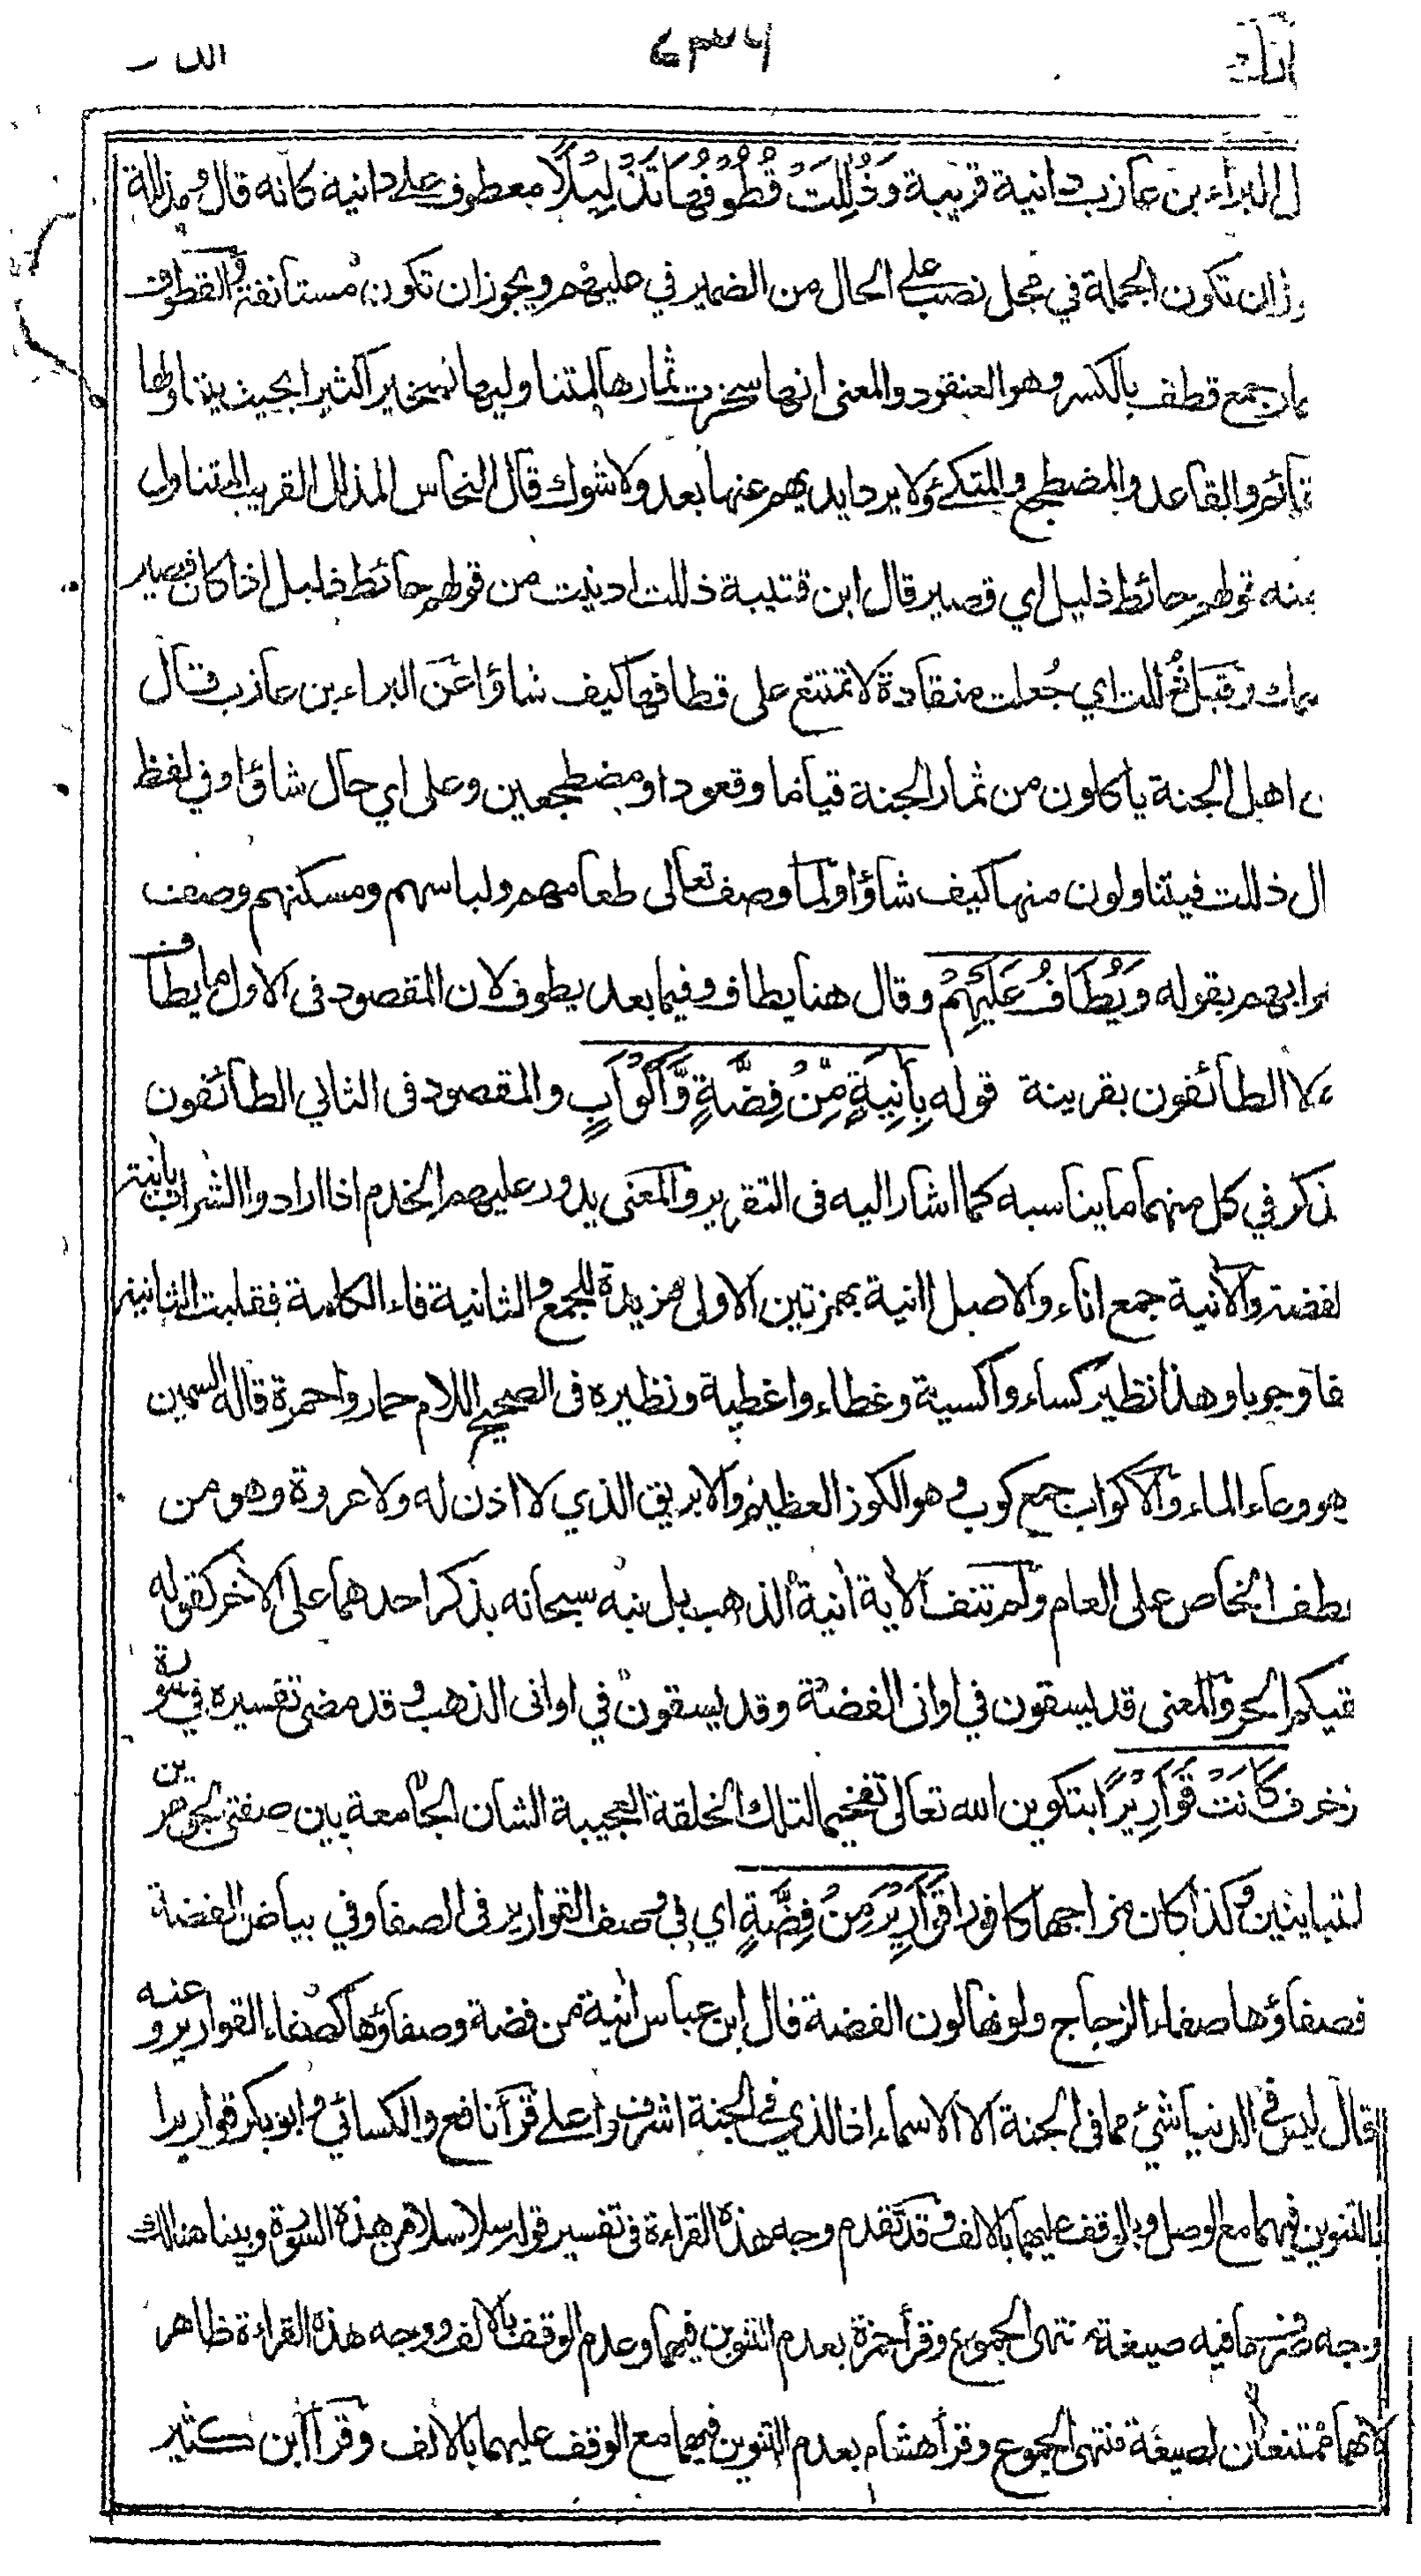 ل البراء بن عازب دانية قريبة وَذُلِّلَتْ قُطُوْفُهَا تَذْلِيْلًا معطوف على دانية كانه قال ومذللة
ان تكون الجملة في محل نصب على الحال من الضمير في عليهم ويجوز ان تكون مستانفة والقطوف
جمع قطف بالكسر وهو العنقود والمعنى انها سخرت ثمارها لمتناوليها تسخيرا كثيرا بحيث يتناولها
والقاعد والمضطجع والمتكئ ولا يرد ايديهم عنها بعد ولا شوك قال النحاس المذلل القريب المتناول
منه قولهم حائط ذليل اي قصير قال ابن قتيبة ذللت ادنيت من قولهم حائط ذليل اذا كان قصير
وقيل ذللت اي جعلت منقادة لا تمتنع على قطافها كيف شاؤا عن البراء بن عازب قال
اهل الجنة يأكلون من ثمار الجنة قياما وقعودا ومضطجعين وعلى اي حال شاؤا وفي لفظ
ال ذللت فيتناولون منها كيف شاؤا ولما وصف تعالى طعامهم ولباسهم ومسكنهم وصف
رابهم بقوله وَيُطَافُ عَلَيْهِمْ وقال هنا يطاف وفيما بعد يطوف لان المقصود فى الاول ما يطاف
لا الطائفون بقرينة قوله بِاٰنِيَةٍ مِّنْ فِضَّةٍ وَّاَكْوَابٍ والمقصود فى الثاني الطائفون
ذكر في كل منهما ما يناسبه كما اشار اليه فى التقرير والمعنى يدور عليهم الخدم اذا ارادوا الشراب بآنية
لفضة والآنية جمع اناء والاصل اانية بهمزتين الاولى مزيدة للجمع والثانية فاء الكلمة فقلبت الثانية
فا وجوبا وهذا نظير كساء واكسية وغطاء واغطية ونظيره فى الصحيح اللام حمار واحمرة قاله السمين
هو وعاء الماء والاكواب جمع كوب وهو الكوز العظيم والابريق الذي لا اذن له ولا عروة وهو من
طف الخاص على العام ولم تنف الآية آنية الذهب بل نبه سبحانه بذكر احدهما على الآخر كقوله
قيكم الحر والمعنى قد يسقون في اوانى الفضة وقد يسقون في اوانى الذهب وقد مضى تفسيره في سورة
زخرف كَانَتْ قَوَارِيْرَا بتكوين الله تعالى تفخيما لتلك الخلقة العجيبة الشان الجامعة بين صفتي الجوهرين
لتباينين وكذا كان مزاجها كافورا قَوَارِيْرَ مِنْ فِضَّةٍ اي في وصف القوارير فى الصفا وفي بياض الفضة
فصفاؤها صفاء الزجاج ولونها لون الفضة قال ابن عباس آنية من فضة وصفاؤها كصفاء القوارير وعنه
قال ليس في الدنيا شيء مما فى الجنة الا الاسماء اذ الذي في الجنة اشرف واعلى قرأ نافع والكسائي وابو بكر قواريرا
بالتنوين فيهما مع الوصل وبالوقف عليهما بالالف وقد تقدم وجه هذه القراءة في تفسير قوله سلاسلا من هذه السورة وبينا هنالك
وجه صرف ما فيه صيغة منتهى الجموع وقرأ حمزة بعدم التنوين فيهما وعدم الوقف بالالف ووجه هذه القراءة ظاهر
لانهما ممتنعان لصيغة منتهى الجموع وقرأ هشام بعدم التنوين فيهما مع الوقف عليهما بالالف وقرأ ابن كثير